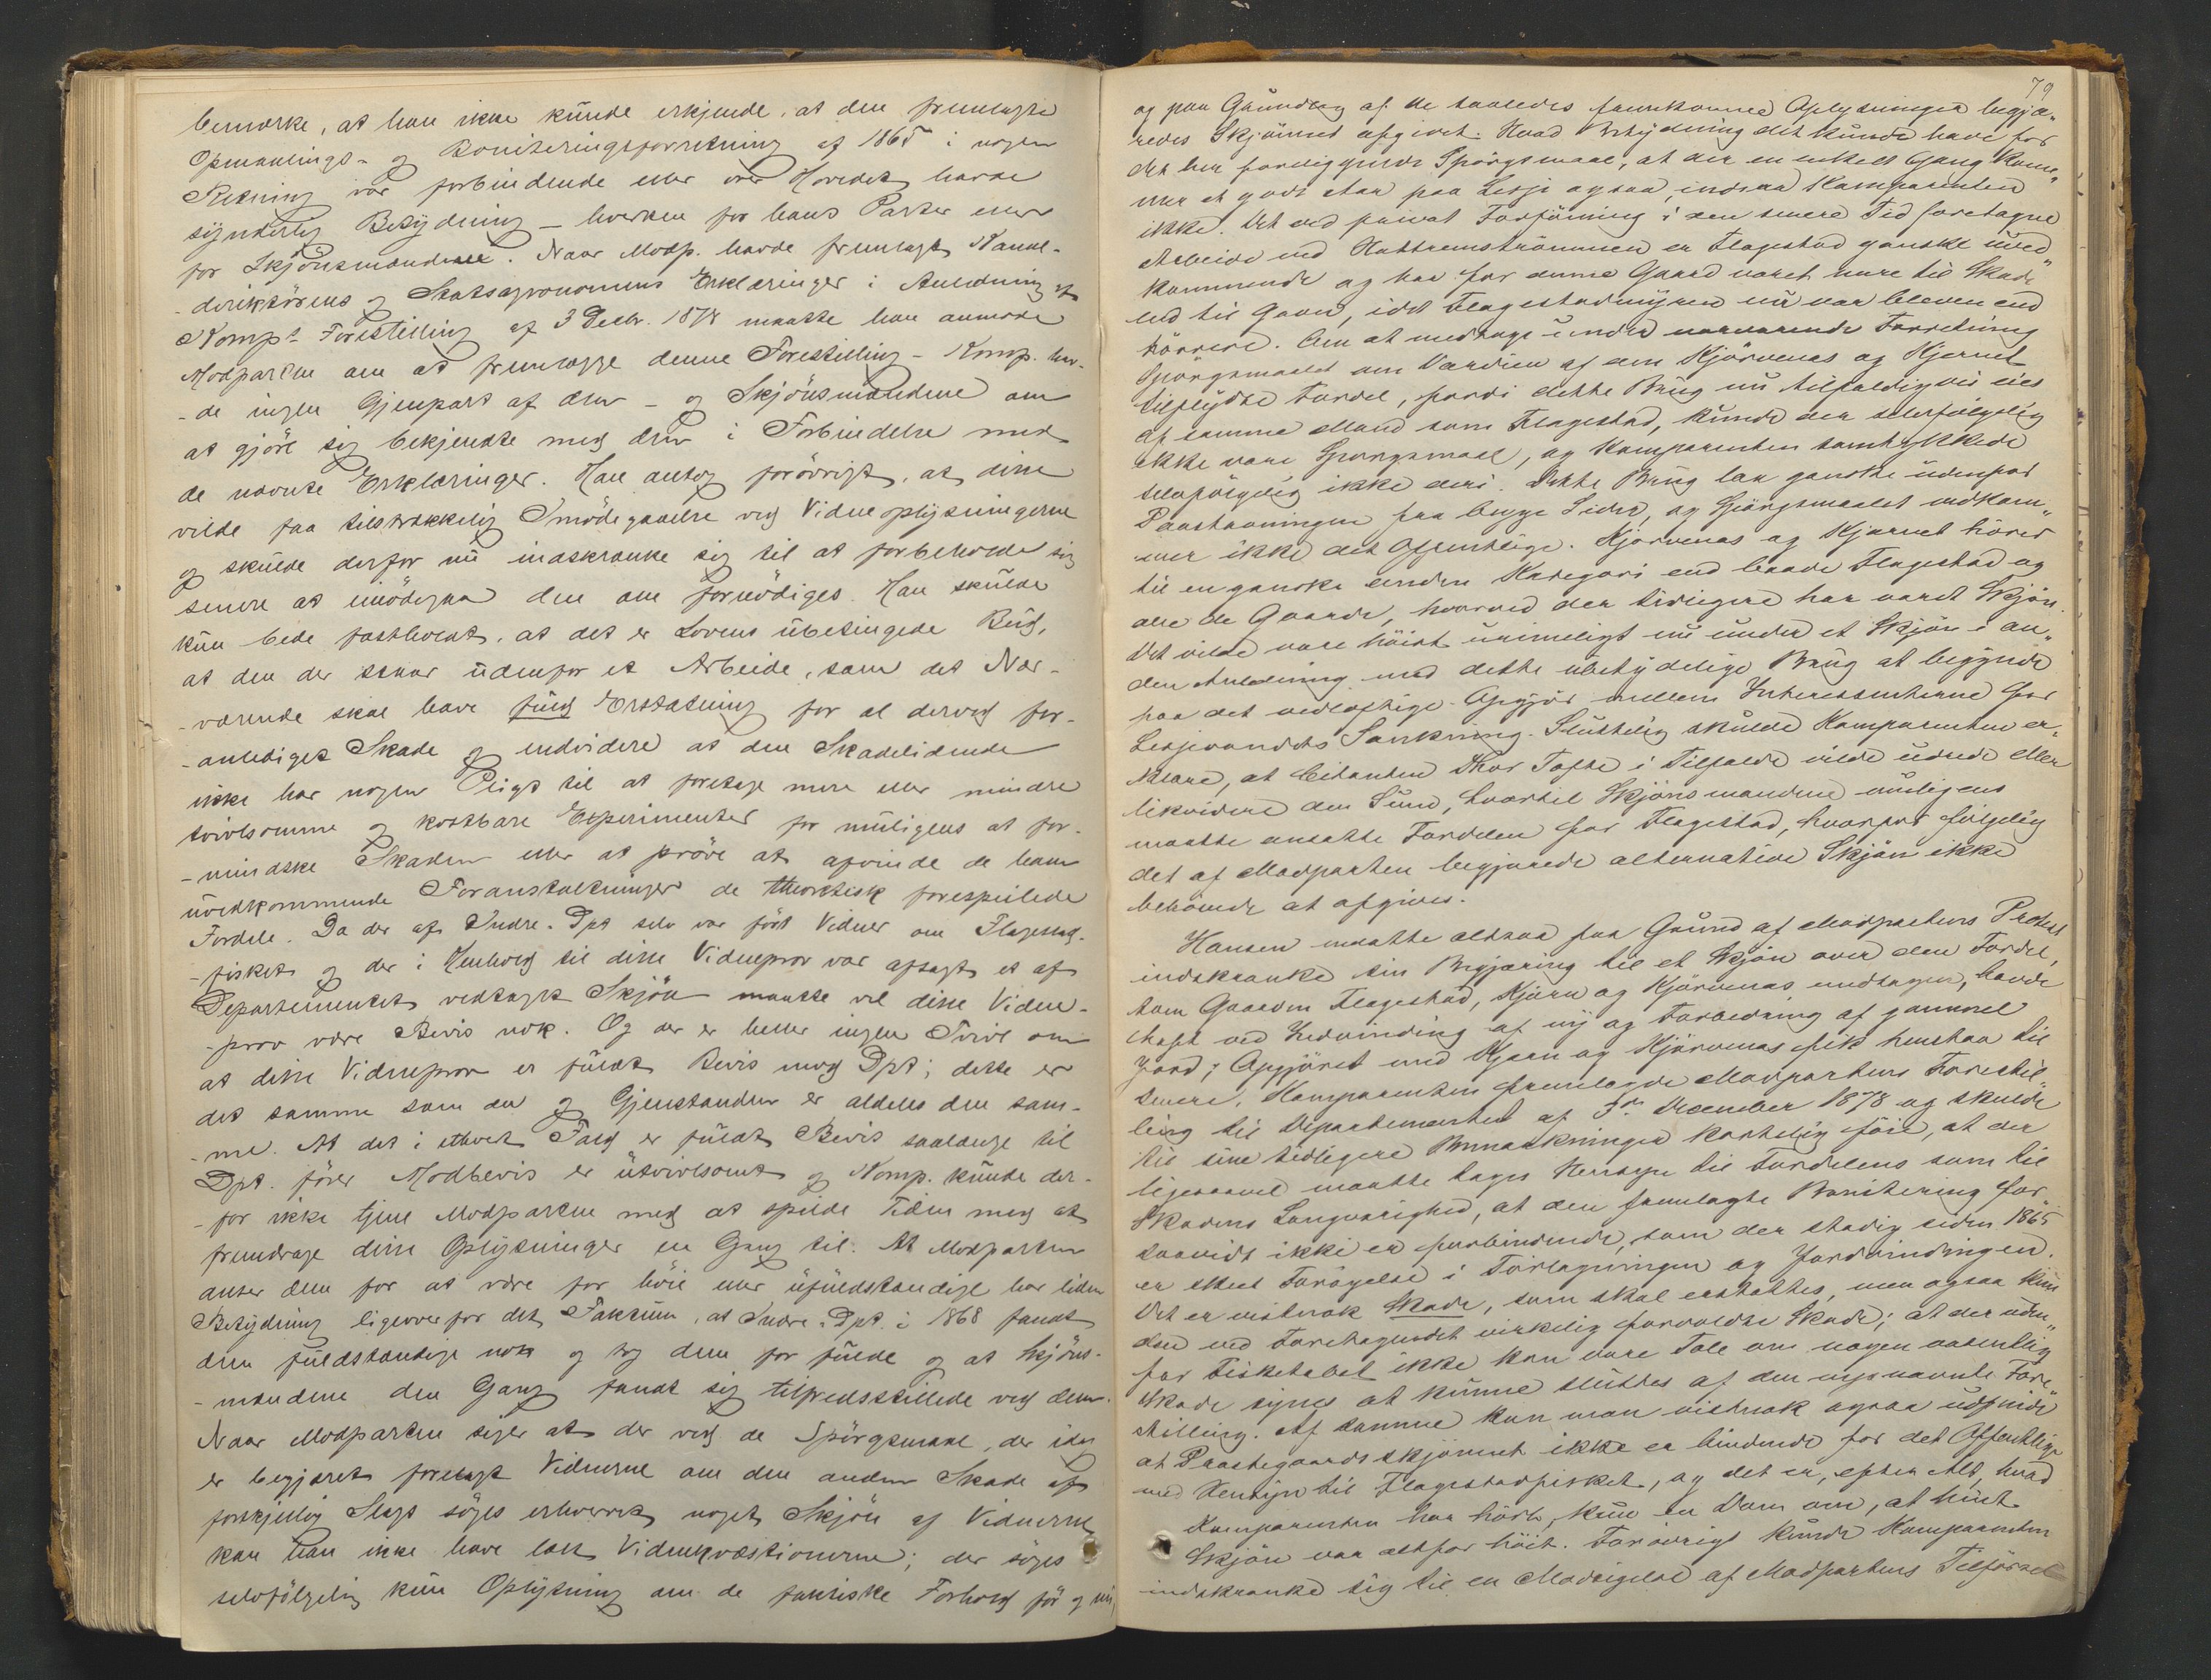 bemærke, at han ikke kunde erkjende, at den fremlagte
Opmaalings- og Boniteringsforretning af 1865 i nogen
Retning var forbindende eller over Hovedet havde
synderlig Betydning – hverken for hans Parter eller
for Skjönsmændene. Naar Modp. havde fremlagt Kanal-
-direktörens og Statsagronomens Erklæringer i Anledning af
Komps Forestilling af 3 Decbr. 1878 maatte han anmode
Modparten om at fremlægge denne Forestilling – Komp. hav-
-de ingen Gjenpart af den – og Skjönsmændene om
at gjöre sig bekjendte med den i Forbindelse med
de nævnte Erklæringer. Han antog forövrigt, at disse
vilde faa tilstrækkelig Imödegaaelse ved Vidneoplysningerne
og skulde derfor nu indskrænke sig til at forbeholde sig
senere at imödegaa dem om fornödiges. Han skulde
kun bede fastholdt, at det er Lovens ubetingede Bud,
at den der staar udenfor et Arbeide, som det Nær-
-værende skal have fuld Erstatning for al derved for-
-anlediget Skade og endvidere at den Skadelidende
ikke har nogen Pligt til at foretage mere eller mindre
tvivlsomme og kostbare Experimenter for muligens at for-
-mindske Skaden eller at pröve at afvinde de ham
uvedkommende Foranstaltninger de theoretisk forespeilede
Fordele. Da der af Indre-Dpt selv var fört Vidner om Flagestad-
-fisket og der i Henhold til disse Vidneprov var afsagt et af
Departementet vedtaget Skjön maatte vel disse Vidne-
-prov være Bevis nok. Og der er heller ingen Tvivl om
at disse Vidneprov er fuldt Bevis mod Dpt; dette er
det samme som da og Gjenstanden er aldeles den sam-
-me. At det i ethvert Fald er fuldt Bevis saalænge til
Dpt. förer Modbevis er utvivlsomt og Komp. kunde der-
-for ikke tjene Modparten med at spilde Tiden med at
fremdrage disse Oplysninger en Gang til. At Modparten
anser dem for at være for höie eller ufuldstændige har liden
Betydning ligeoverfor det Faktum, at Indre-Dpt. i 1868 fandt
dem fuldstændige nok og tog dem for fulde og at Skjöns-
-mændene den Gang fandt sig tilfredsstillede ved dem.
Naar Modparten siger at der ved de Spörgsmaal, der idag
er begjæret forelagt Vidnerne om den anden Skade af
forskjellig Slags söges erhvervet noget Skjön af Vidnerne
kan han ikke have læst Vidneqvæstionerne; der söges
selvfölgelig kun Oplysning om de faktiske Forhold för og nu,
79
og paa Grundlag af de saaledes fremkomne Oplysninger begjæ-
redes Skjönnet afgivet. Hvad Betydning det kunde have for
det her foreliggende Spörgsmaal, at der en enkelt Gang kom-
mer et godt Aar paa Lesje ogsaa, indsaa Komparenten
ikke. Det ved privat Forföining i den senere Tid foretagne
Arbeide ved Hattremströmmen er Flagestad ganske uved-
kommende og har for denne Gaard været mere til Skade
end til Gavn, idet Flagestadmyren nu var bleven end
törrere. Om at medtage under nærværende Forretning
Spörgsmaalet om Værdien af den Kjörvenæs og Kjernet
tilflydte Fordel, fordi dette Brug nu tilfældigvis eies
af samme Mand som Flagestad, kunde der selvfölgelig
ikke være Spörgsmaal, og Komparenten samtykkede
selvfölgelig ikke deri. Dette Brug laa ganske udenfor
Paastævningen fra begge Sider, og Spörgsmaalet vedkom-
mer ikke det Offentlige. Kjörvenæs og Kjernet hörer
til en ganske anden Kategori end baade Flagestad og
alle de Gaarde, hvorved der tidligere har været Skjön.
Det vilde være höist urimeligt nu under et Skjön i an-
den Anledning med dette ubetydelige Brug at begynde
paa det vidlöftige Opgjör mellem Interessenterne for
Lesjevandets Sænkning. Sluttelig skulde Komparenten er-
klære, at Citanten Thor Tofte i Tilfælde vilde udrede eller
likvidere den Sum, hvortil Skjönsmændene muligens
maatte ansætte Fordelen for Flagestad, hvorfor fölgelig
det af Modparten begjærede alternative Skjön ikke
behövede at afgives.
Hansen maatte altsaa paa Grund af Modpartens Protest
indskrænke sin Begjæring til et Skjön over den Fordel,
som Gaarden Flagestad, Kjörn og Kjörvenæs undtagen, havde
havt ved Indvinding af ny og Forbedring af gammel
Jord; Opgjöret med Kjern og Kjörvenæs fik henstaa til
senere. Komparenten fremlagde Modpartens Forestil-
ling til Departementet af 3die December 1878 og skulde
til sine tidligere Bemærkninger kortelig föie, at der
ligesaavel maatte tages Hensyn til Fordelens som til
Skadens Langvarighed, at den fremlagte Bonitering for-
saavidt ikke er forbindende, som der stadig siden 1865
er skeet Forögelse i Törlægningen og Jordvindingen.
Det er vistnok Skade, som skal erstattes, men ogsaa kun
den ved Foretagendet virkelig forvoldte Skade; at der uden-
for Fisketabet ikke kan være Tale om nogen væsentlig
Skade synes at kunne sluttes af den nysnævnte Fore-
stilling. Af samme kan man vistnok ogsaa udfinde
at Præstegaardsskjönnet ikke er bindende for det Offentlige
med Hensyn til Flagestadfisket, og det er, efter Alt, hvad
Komparenten har hört, kun en Dom om, at hint
Skjön var altfor höit. Forövrigt kunde Komparenten
indskrænke sig til en Modsigelse af Modpartens Tilförsel